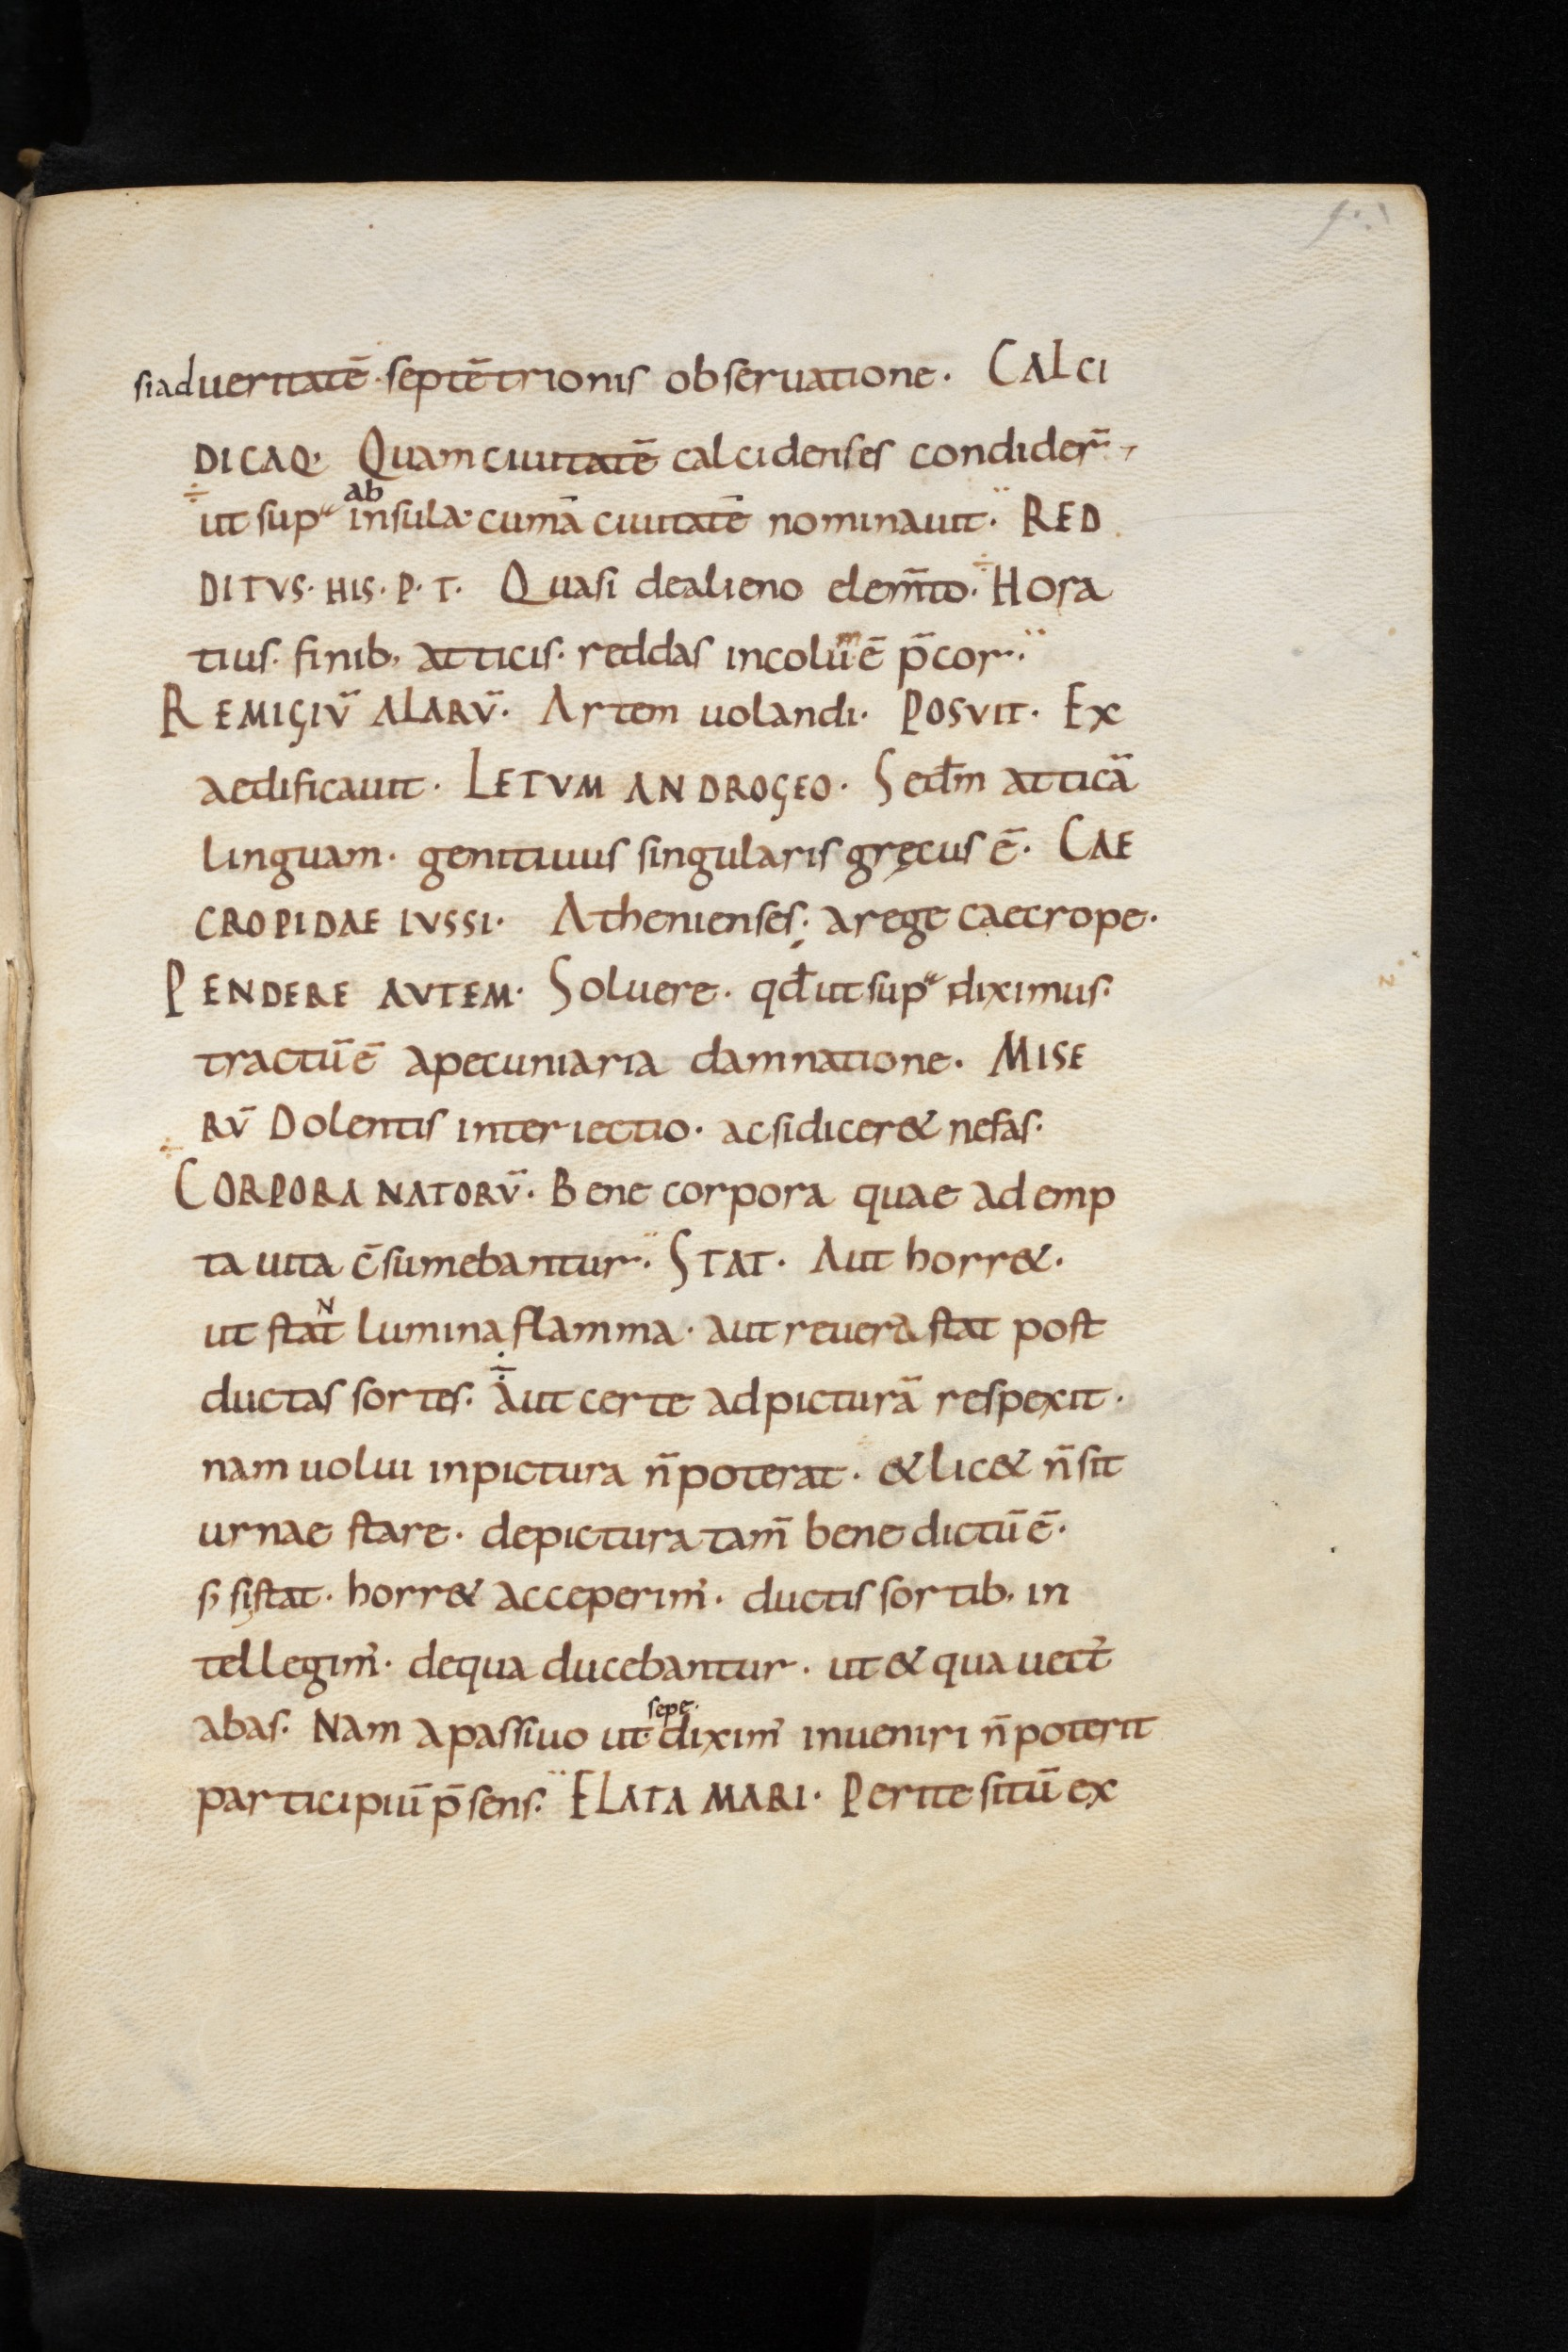 si ad ueritatē · septētrionis obseruatione · CALCI
DICAQ· Quam ciuitatē calcidenses condider̄
ut supᵃ ab insula· cumā ciuitatē nominauit · RED
DITVS · HIS · P · T · Quasi de alieno elem̄to · Hora
tius · finib, atticis · reddas incolūmē p̄cor ·
REMIGIV̄ ALARV̄ · Artem uolandi · POSVIT · Ex
aedificauit · LETVM ANDROGEO · Secdm̄ atticā
linguam · genitiuus singularis gręcus ē · CAE
CROPIDAE IVSSI · Athenienses · a rege caecrope ·
PENDERE AVTEM · Soluere · qd̄ ut supᵃ diximus ·
tractū ē a pecuniaria damnatione · MISE
RV̄ Dolentis interiectio · ac si dicer& nefas ·
CORPORA NATORV̄ · Bene corpora quae ademp
ta uita c̄sumebantur · STAT · Aut horr& ·
ut staNt lumina flamma · aut reuera stat post
ductas sortes · Aut certe ad picturā respexit ·
nam uolui in pictura n̄ poterat · & lic& n̄ sit
urnae stare · de pictura tam̄ bene dictū ē ·
s; si stat · horr& acceperim' · ductis sortib, in
tellegim' · de qua ducebantur · ut & qua uect'
abas · Nam a passiuo ut sepe · dixim' inueniri n̄ poterit
participiū p̄sens · ELATA MARI · Perite sitū ex